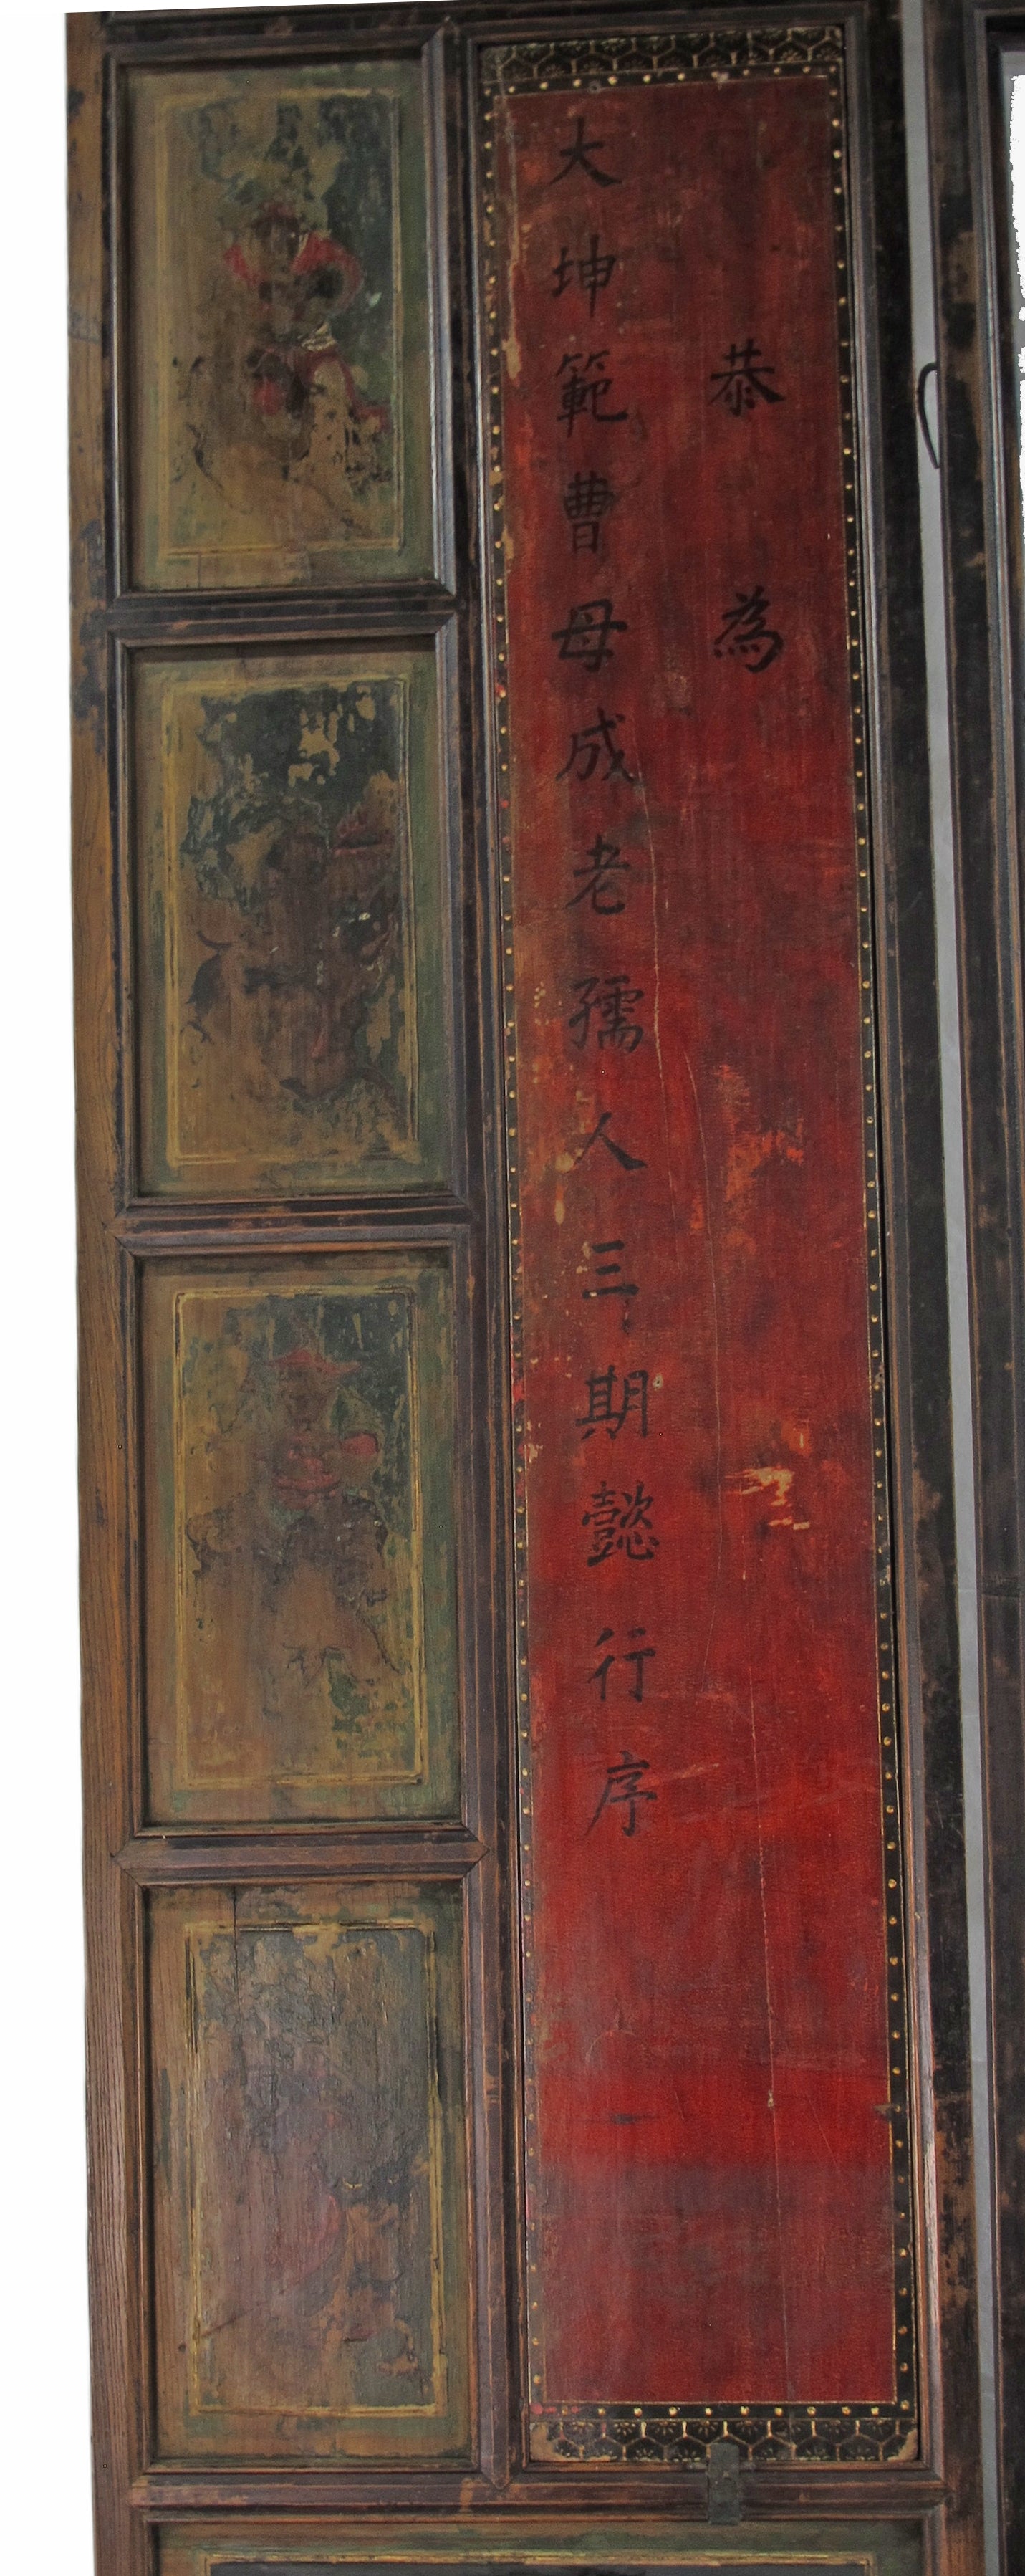 恭為
大坤範曹母成老孺人三期懿行序